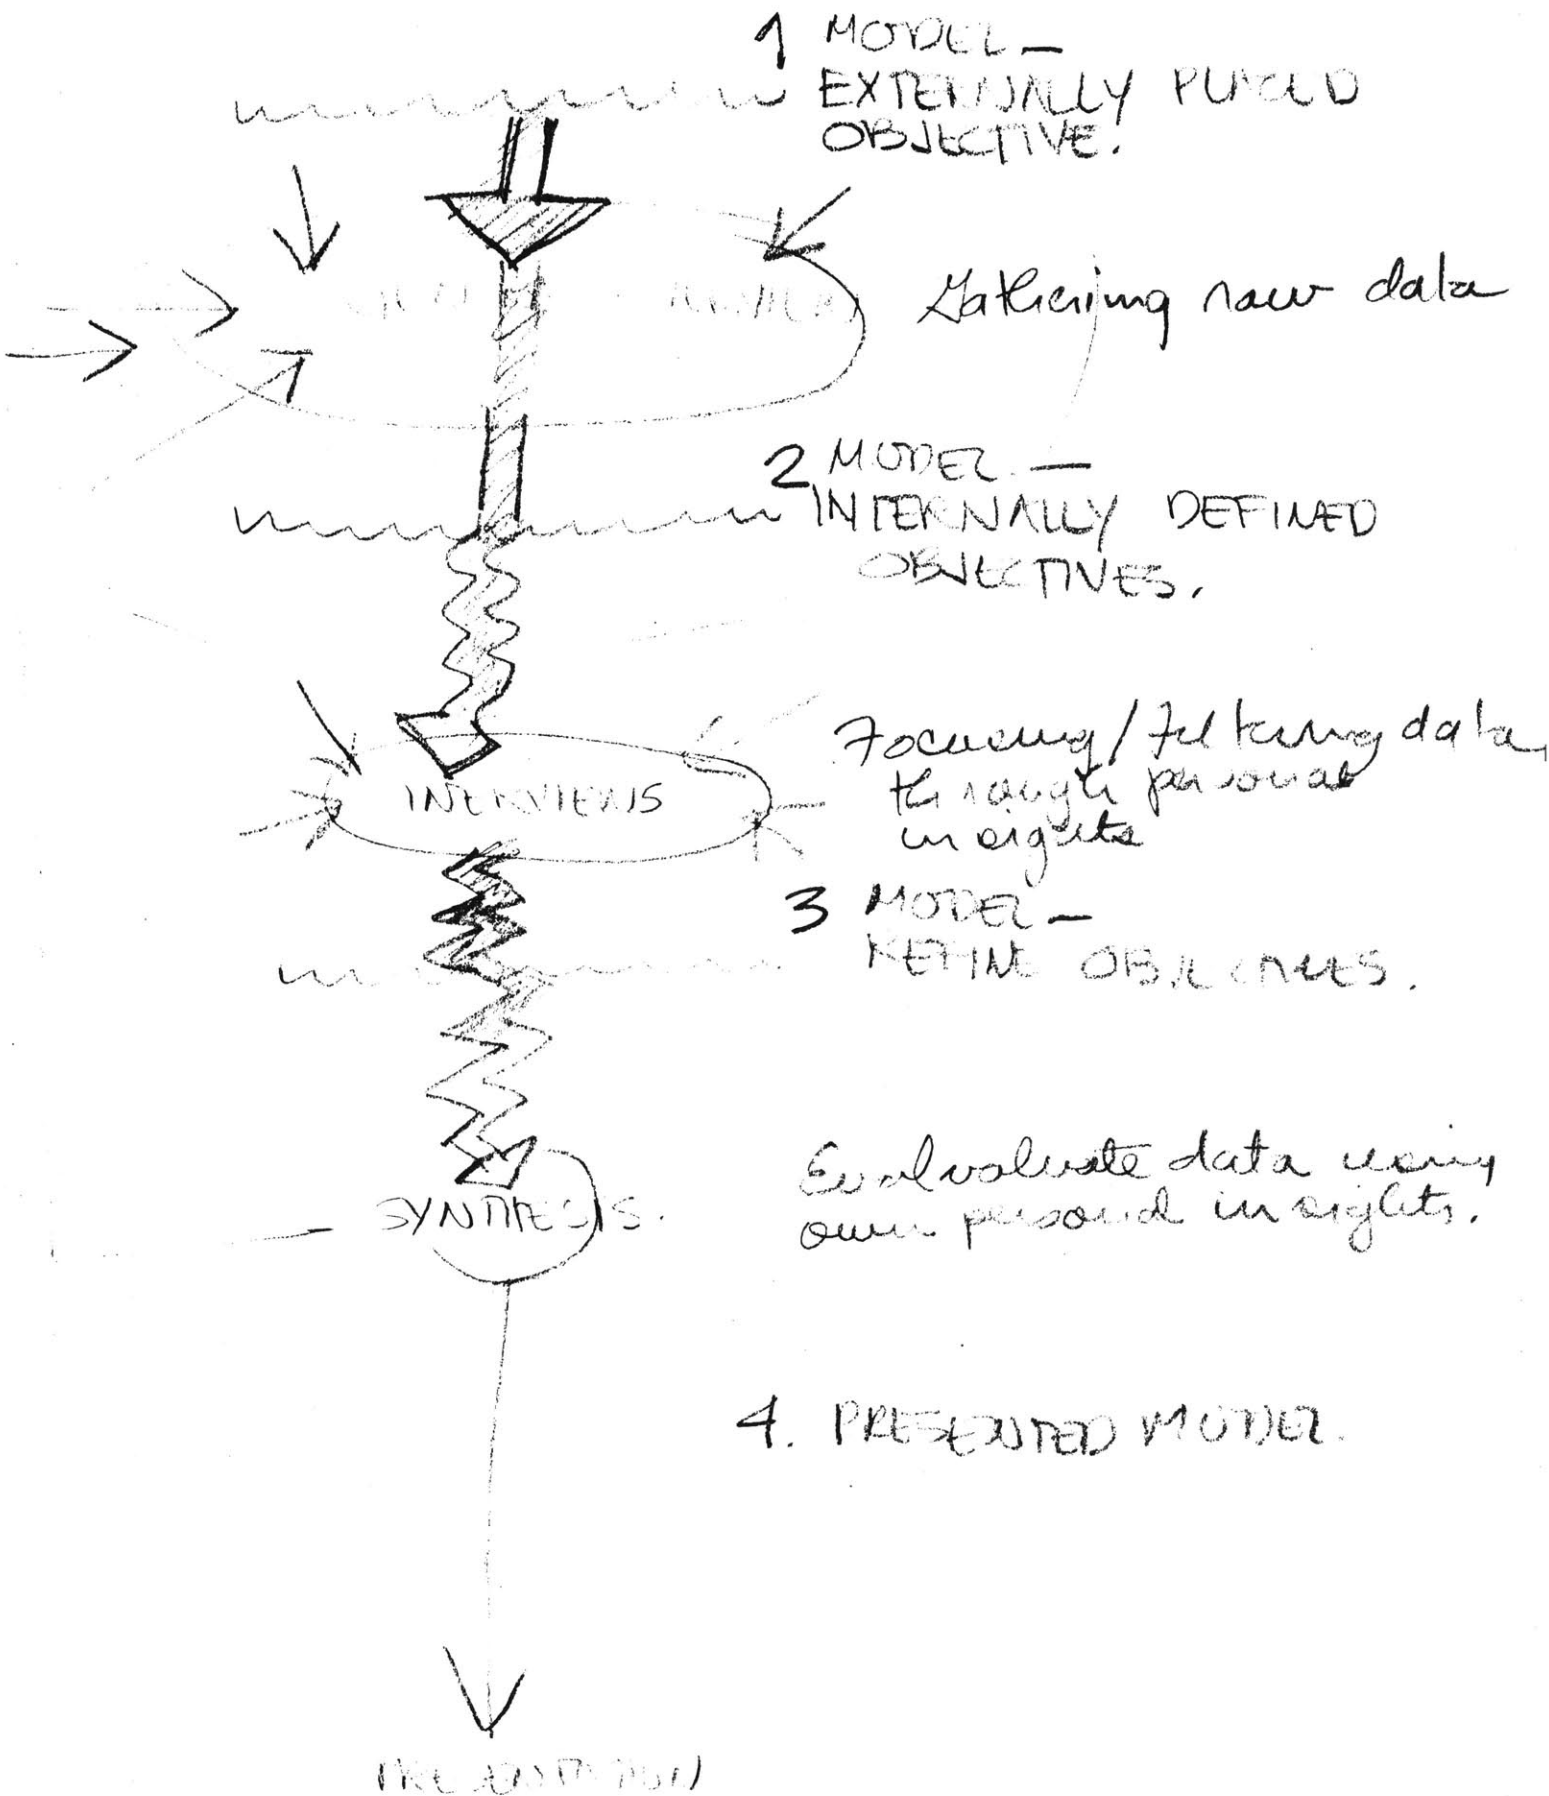 1 MODEL —
EXTERNALLY PLACED
OBJECTIVE.
Gathering raw data
2 MODEL —
INTERNALLY DEFINED
OBJECTIVES.
Focusing/Filtering data
through personal
insights
INERVIEWS
3 MODEL —
REFINE OBJECTIVES.
Evalvaluate data using
own personal insights.
SYNTHESIS.
4. PRESENTED MODEL.
PRESENTATION